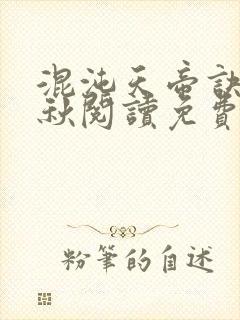 混沌天帝訣
秋閱讀免費
粉筆的自述